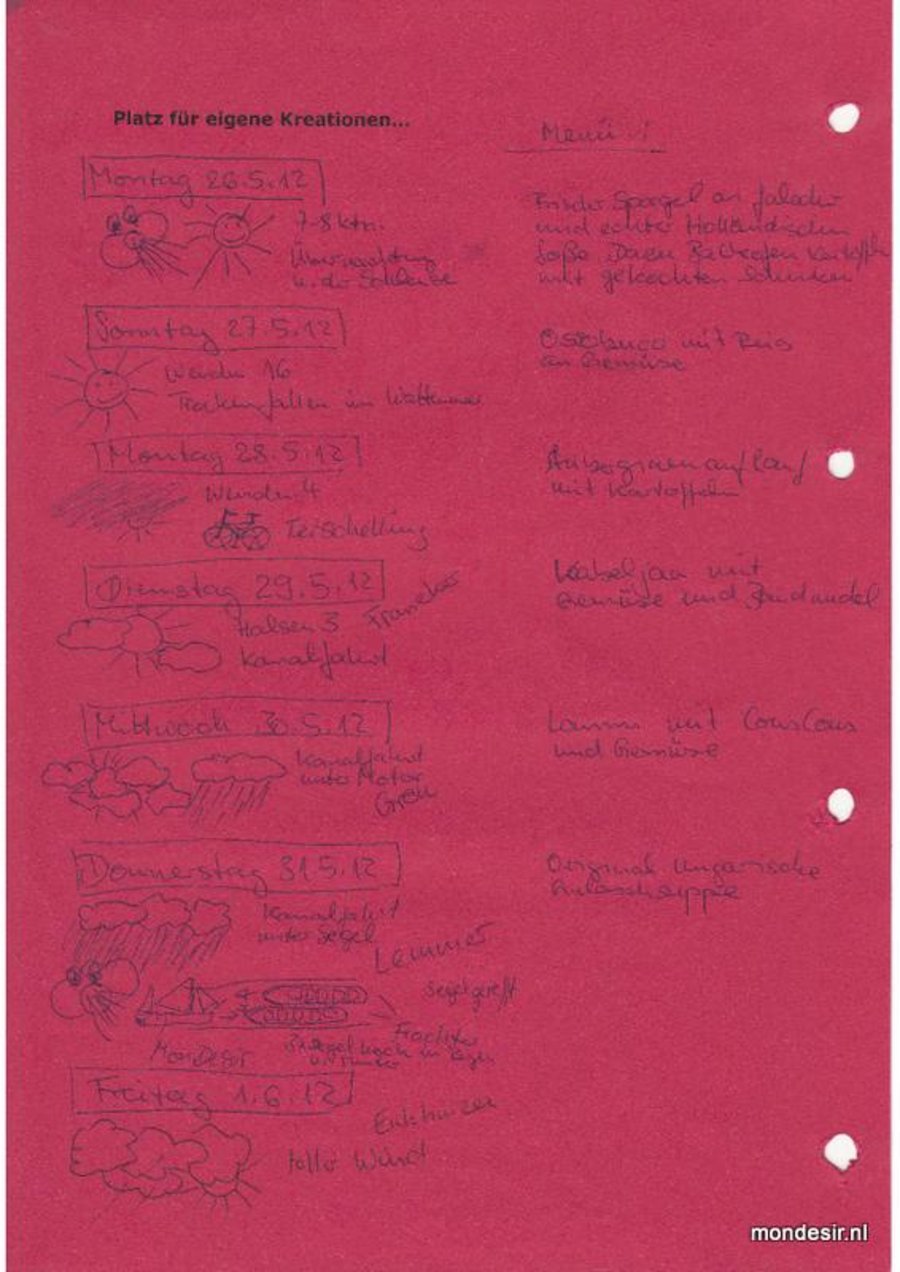 Platz für eigene Kreationen...
Menü !
Montag 26.5.12
7-8 ktn.
Übernachtung
Frischer Spargel an
und echter Holländischen
Soße. Backofen Kartoffeln
mit gekochten Schinken
Sonntag 27.5.12
16
Trockenfallen im Wattenmeer
Ossobuco mit Reis
an Gemüse
Montag 28.5.12
4
Terschelling
mit Kartoffeln
Dienstag 29.5.12
Halsen 3 Franeker
Kanalfahrt
Kabeljau mit
Gemüse und
Mittwoch 30.5.12
Kanalfahrt
unter Motor
Grou
Lamm mit CousCous
und Gemüse
Donnerstag 31.5.12
Kanalfahrt
unter Segel
Lemmer
Segel gerefft
Frachter
MonDesir
Original Ungarische
Freitag 1.6.12
Enkhuizen
toller Wind
mondesir.nl